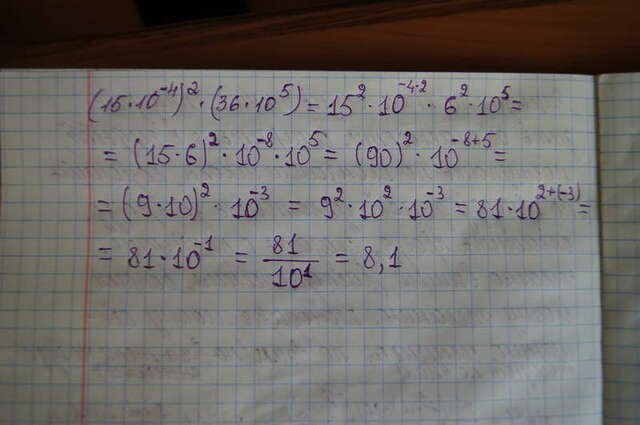 (15·10⁻⁴)²·(36·10⁵)=15²·10⁻⁴·²·6²·10⁵=
=(15·6)²·10⁻⁸·10⁵=(90)²·10⁻⁸⁺⁵=
=(9·10)²·10⁻³=9²·10²·10⁻³=81·10²⁺⁽⁻³⁾=
=81·10⁻¹=81/10¹=8,1